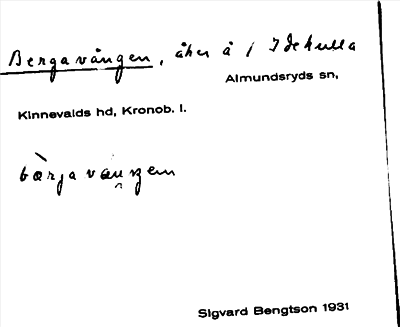 Bergavången, åker å 1 Idekulla
Almundsryds sn,
Kinnevalds hd, Kronob. l.
bærjavæŋen
Sigvard Bengtson 1931